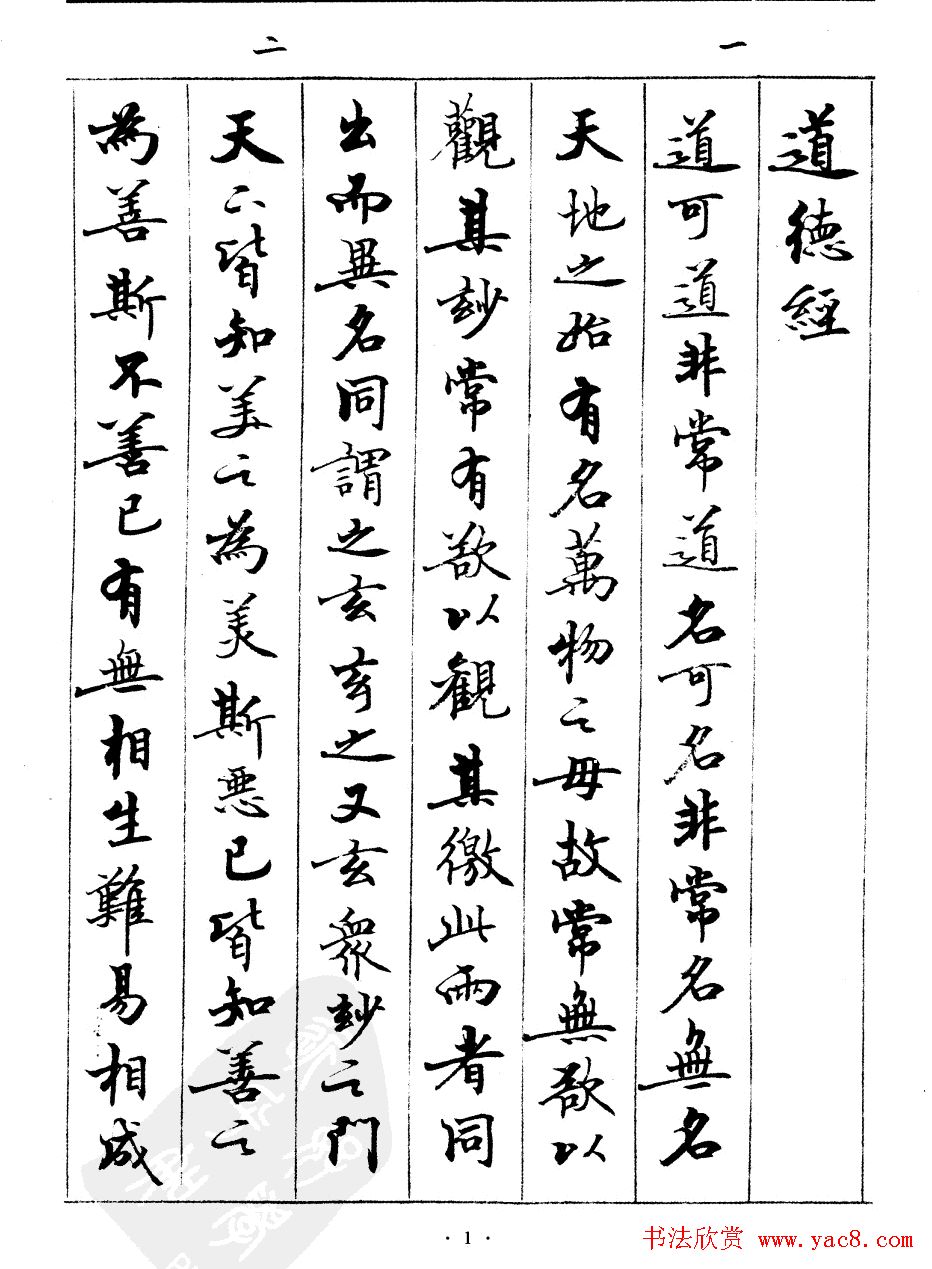 一
二
道德經
道可道非常道名可名非常名無名
天地之始有名萬物之母故常無欲以
觀其玅常有欲以觀其徼此兩者同
出而異名同謂之玄玄之又玄衆玅之門
天下皆知美之為美斯惡已皆知善之
為善斯不善已有無相生難易相成
· 1 ·
书法欣赏 www.yac8.com